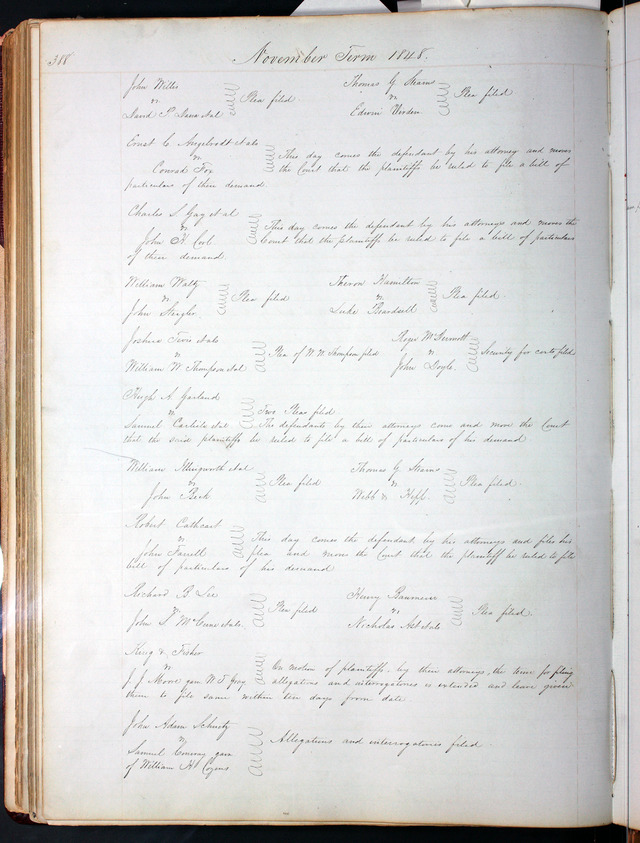 388 November Term 1848.
John Miller Thomas G Stearns
vs Plea filed vs Plea filed
David P. et al Edwin Virden
Ernst C Angelrodt et als
vs This day comes the defendant by his attorney and moves
Conrad Fox the Court that the plaintiffs be ruled to file a bill of
particulars of their demand
Charles S. Gay et al
vs This day comes the defendant by his attorneys and moves the
John K. Court that the plaintiffs be ruled to file a bill of particulars
of their demand
William Waltz Theron Hamilton
vs Plea filed vs Plea filed.
John Luke Beardsell
Joshua et als Roger McDermott
vs Plea of W. W. Thompson filed vs Security for costs filed
William W Thompson et al John Doyle.
Hugh A. Garland
vs Two Pleas filed
Samuel Carlisle et al The defendants by their attorneys come and move the Court
that the said plaintiff be ruled to file a bill of particulars of his demand
William Illingworth et al Thomas G Stearns
vs Plea filed vs Plea filed.
John Beck Webb &
Robert Cathcart
vs This day comes the defendant by his attorneys and files his
John Farrell plea and moves the Court that the plaintiff be ruled to file
bill of particulars of his demand
Richard B Lee Henry
vs Plea filed vs Plea filed.
John S. McCune et als. Nicholas et als
King & Fisher
vs On motion of plaintiffs by their attorneys, the time for filing
J. J. Moore garn N. J. Gray allegations and interrogatories is extended and leave given
them to file same within ten days from date
John Adam
vs Allegations and interrogatories filed.
Samuel Conway garn
of William H Cozens